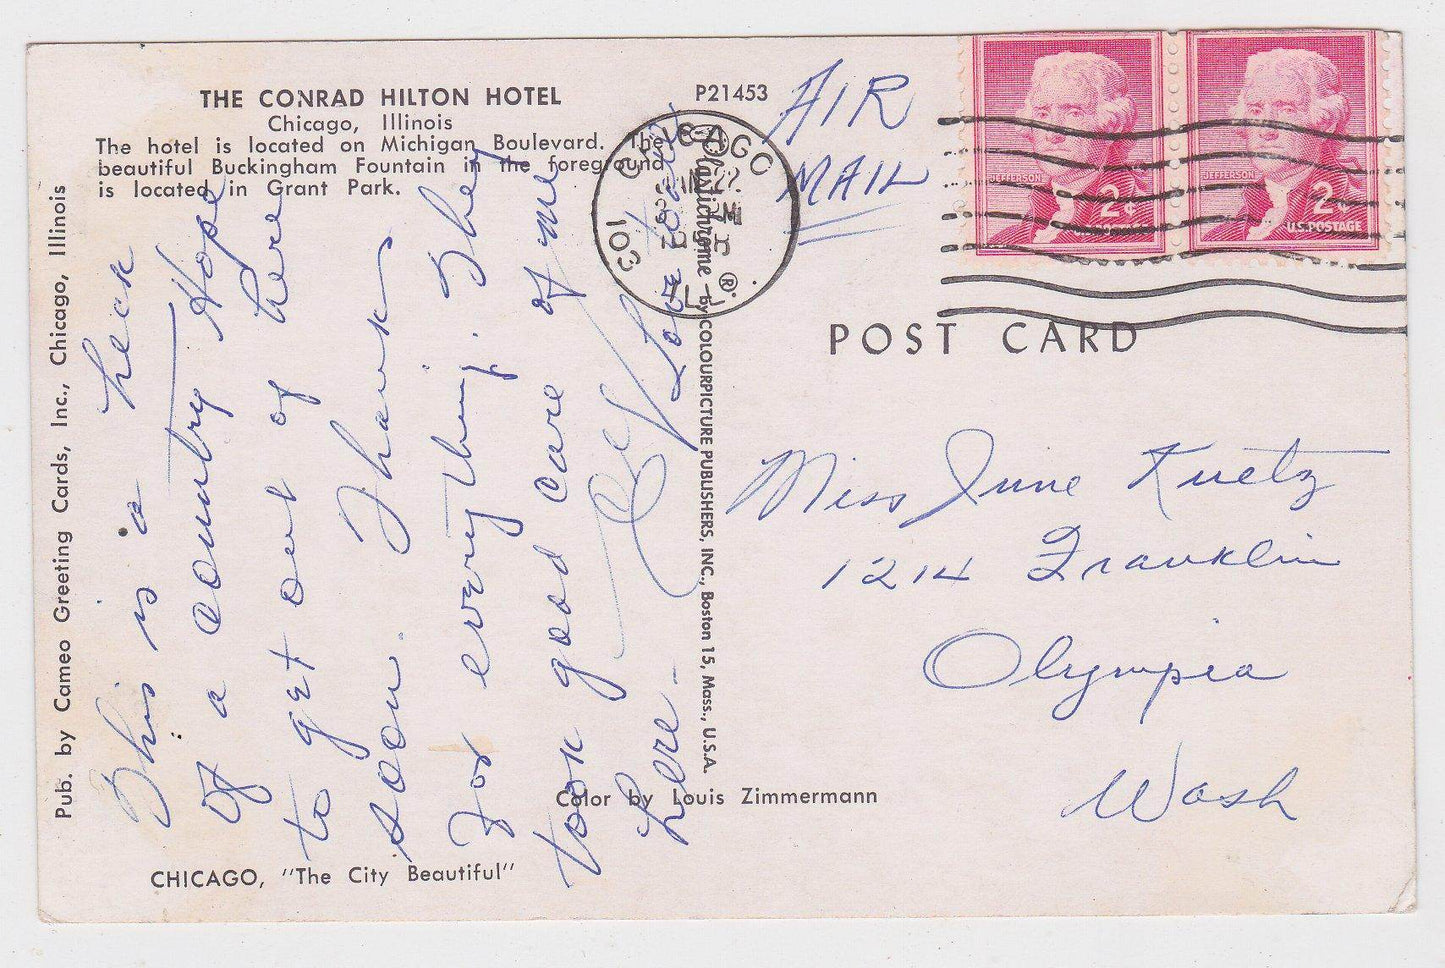 THE CONRAD HILTON HOTEL
Chicago, Illinois
The hotel is located on Michigan Boulevard. The
beautiful Buckingham Fountain in the foreground
is located in Grant Park.
P21453
AIR
MAIL
CHICAGO
22
PM
ILL
103
JEFFERSON
2¢
JEFFERSON
2¢
U.S. POSTAGE
POST CARD
Pub. by Cameo Greeting Cards, Inc., Chicago, Illinois
This is a heck
of a country Hope
to get out of here
soon. Thanks
For everything. They
took good care of me
here.
Love
Plastichrome ® by COLOURPICTURE PUBLISHERS, INC., Boston 15, Mass., U.S.A.
Miss June Kuetz
1214 Franklin
Olympia
Wash
Color by Louis Zimmermann
CHICAGO, "The City Beautiful"